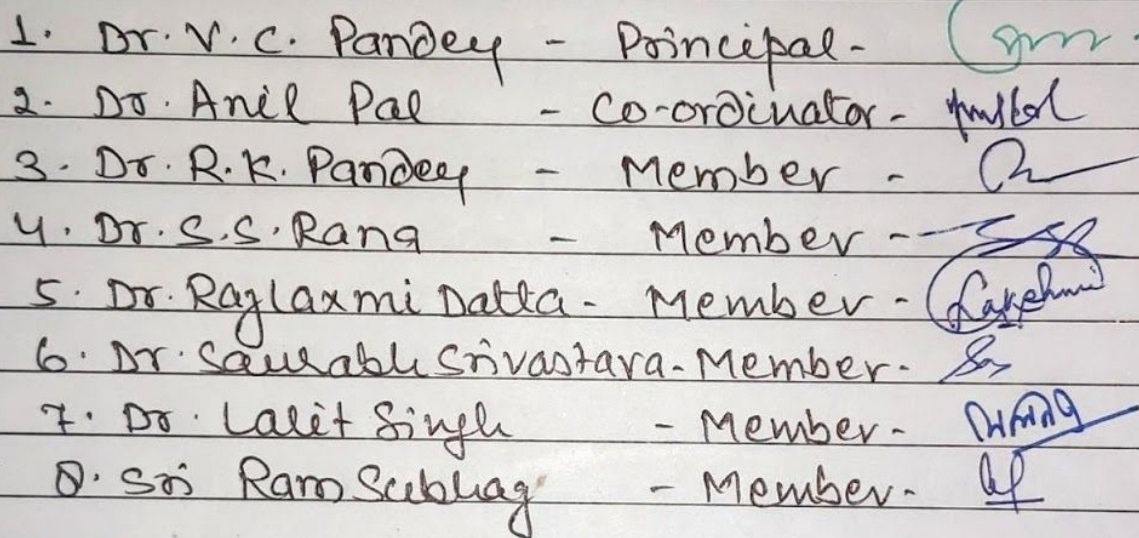 1. Dr. V. C. Pandey - Principal -
2. Dr. Anil Pal - Co-ordinator -
3. Dr. R. K. Pandey - Member -
4. Dr. S.S. Rana - Member -
5. Dr. Rajlaxmi Datta - Member - Lakshmi
6. Dr. Saurabh Srivastava - Member -
7. Dr. Lalit Singh - Member -
8. Sri Ram Subhag - Member -